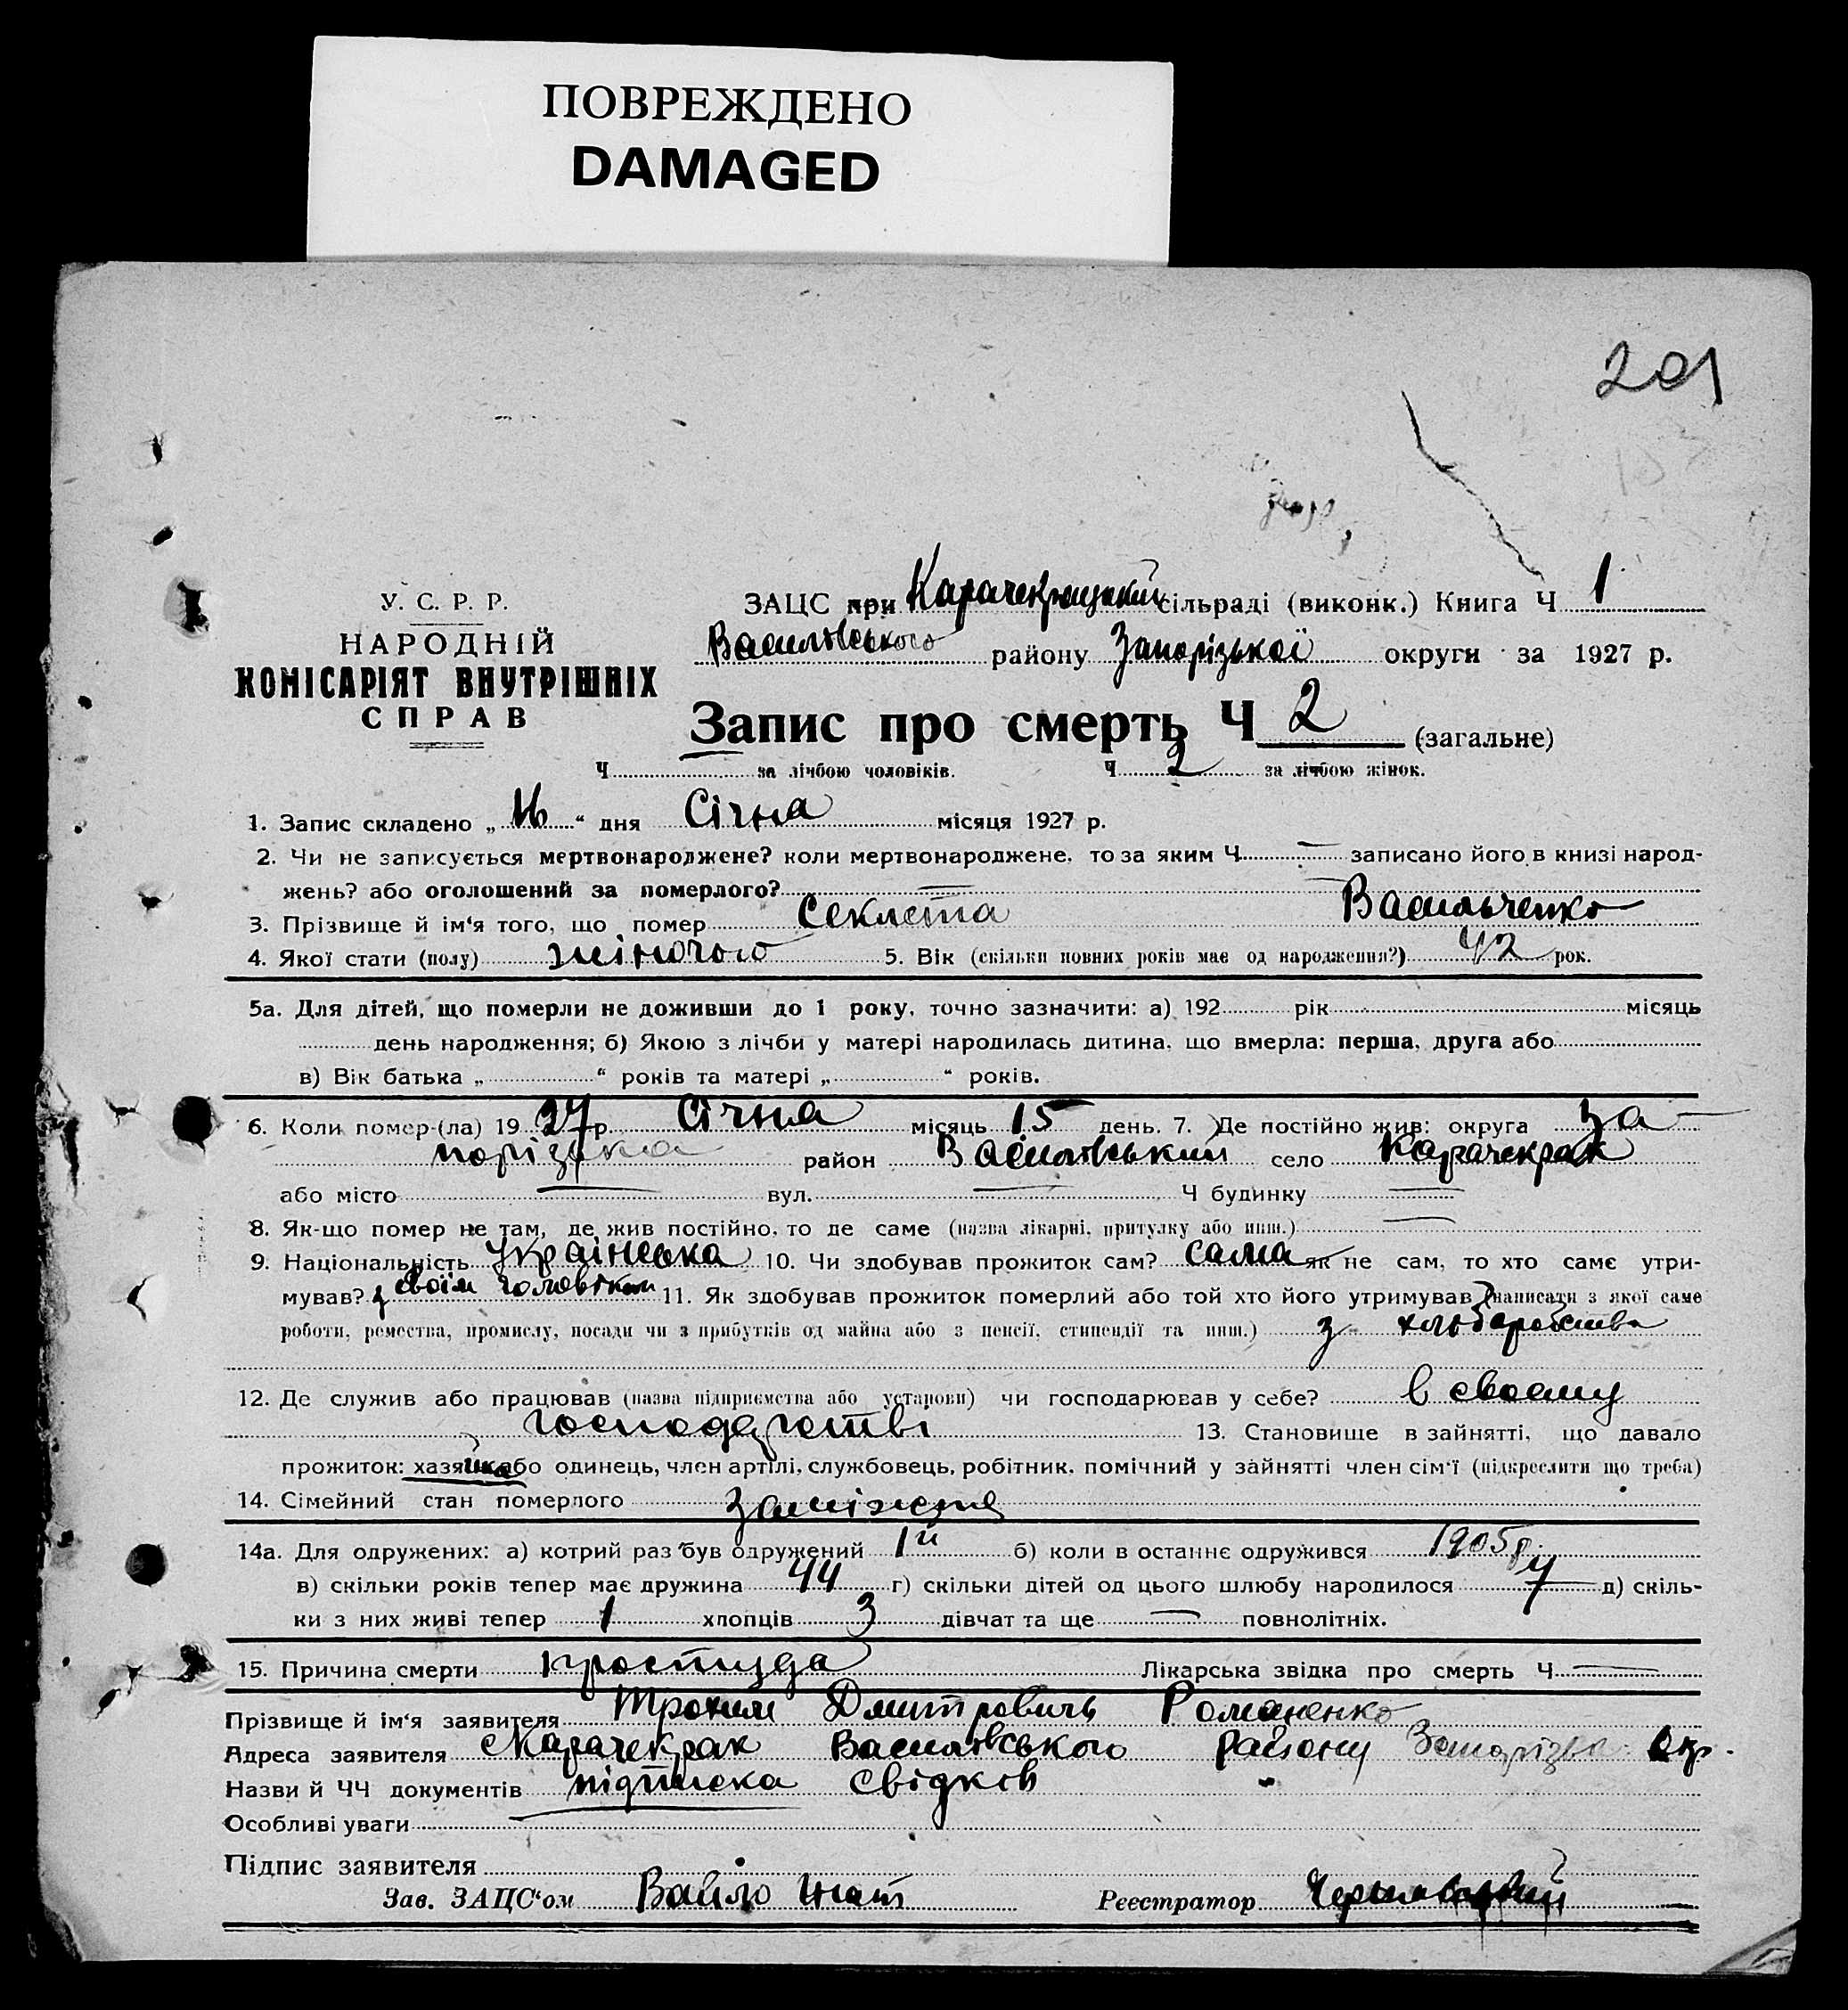 ПОВРЕЖДЕНО
DAMAGED
201
У. С. Р. Р.
НАРОДНІЙ
КОМІСАРІЯТ ВНУТРІШНІХ
СПРАВ
ЗАЦС при Карачекрацький сільраді (виконк.) Книга Ч 1
Василівського району Запорізької округи за 1927 р.
Запис про смерть Ч 2 (загальне)
Ч за лічбою чоловіків. Ч 2 за лічбою жінок.
1. Запис складено „16“ дня Січня місяця 1927 р.
2. Чи не записується мертвонароджене? коли мертвонароджене, то за яким Ч — записано його в книзі народ-
жень? або оголошений за померлого? —
3. Прізвище й ім‘я того, що помер Секлета Васильченко
4. Якої стати (полу) жіночого 5. Вік (скільки повних років має од народження?) 42 рок.
5а. Для дітей, що померли не доживши до 1 року, точно зазначити: а) 192 рік місяць
день народження; б) Якою з лічби у матері народилась дитина, що вмерла: перша, друга або
в) Вік батька „ “ років та матері „ “ років.
6. Коли помер-(ла) 1927 р. Січня місяць 15 день. 7. Де постійно жив: округа За-
порізька район Василівський село Карачекрак
або місто — вул. — Ч будинку —
8. Як-що помер не там, де жив постійно, то де саме (назва лікарні, притулку або инш.) —
9. Національність Українська 10. Чи здобував прожиток сам? сама як не сам, то хто саме утри-
мував? з своїм чоловіком 11. Як здобував прожиток померлий або той хто його утримував (написати з якої саме
роботи, ремества, промислу, посади чи з прибутків од майна або з пенсії, стипендії та инш.) з хліборобства
12. Де служив або працював (назва підприємства або установи) чи господарював у себе? в своєму
господарстві 13. Становище в зайнятті, що давало
прожиток: хазяйка або одинець, член артілі, службовець, робітник, помічний у зайнятті член сім‘ї (підкреслити що треба)
14. Сімейний стан померлого заміжня
14а. Для одружених: а) котрий раз був одружений 1й б) коли в останнє одружився 1905 р.
в) скільки років тепер має дружина 44 г) скільки дітей од цього шлюбу народилося 4 д) скіль-
ки з них живі тепер 1 хлопців 3 дівчат та ще — повнолітніх.
15. Причина смерти простуда Лікарська звідка про смерть Ч —
Прізвище й ім‘я заявителя Трохим Дмитровичь Романенко
Адреса заявителя Карачекрак Василівського району Запорізьк. Окр.
Назви й ЧЧ документів підписка свідків
Особливі уваги
Підпис заявителя
Зав. ЗАЦС‘ом Реєстратор